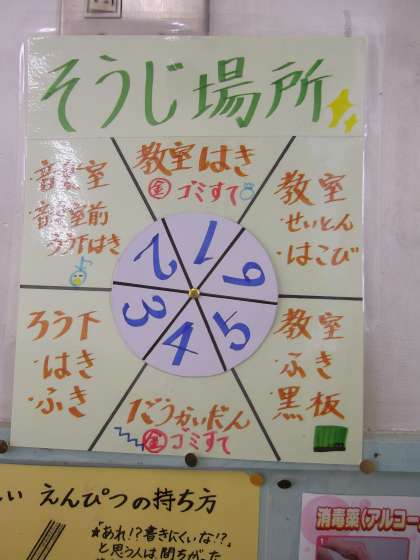 そうじ場所
教室はき
金 ゴミすて
音楽室
・音楽室前
ろう下はき
教室
・せいとん
・はこび
1
2
3
4
5
6
ろう下
・はき
・ふき
教室
・ふき
黒板
1ごうかいだん
金 ゴミすて
しい えんぴつの持ち方
★「あれ!?書きにくいな!?」
と思う人は間ちがった
消毒薬(アルコー